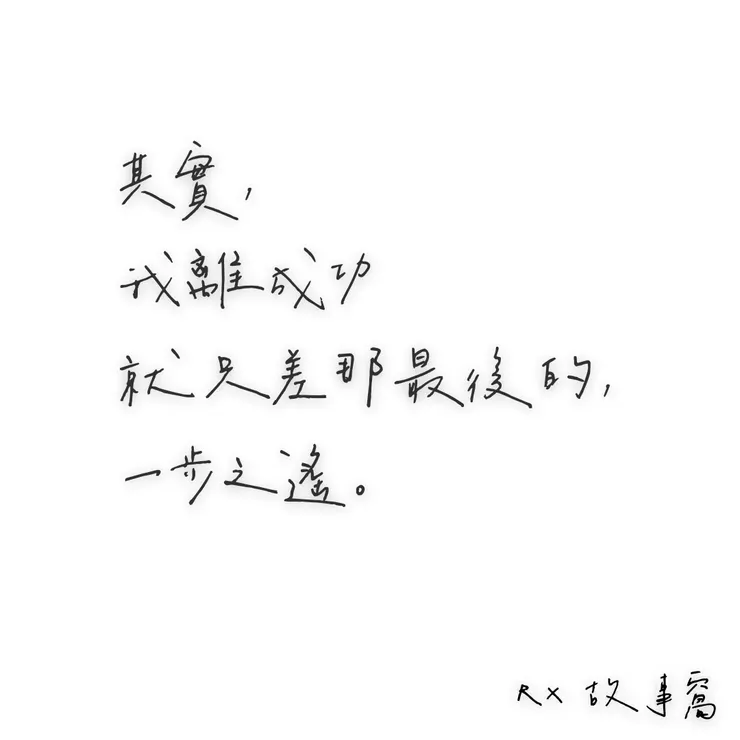 其實，
我離成功
就只差那最後的，
一步之遙。
RX 故事窩